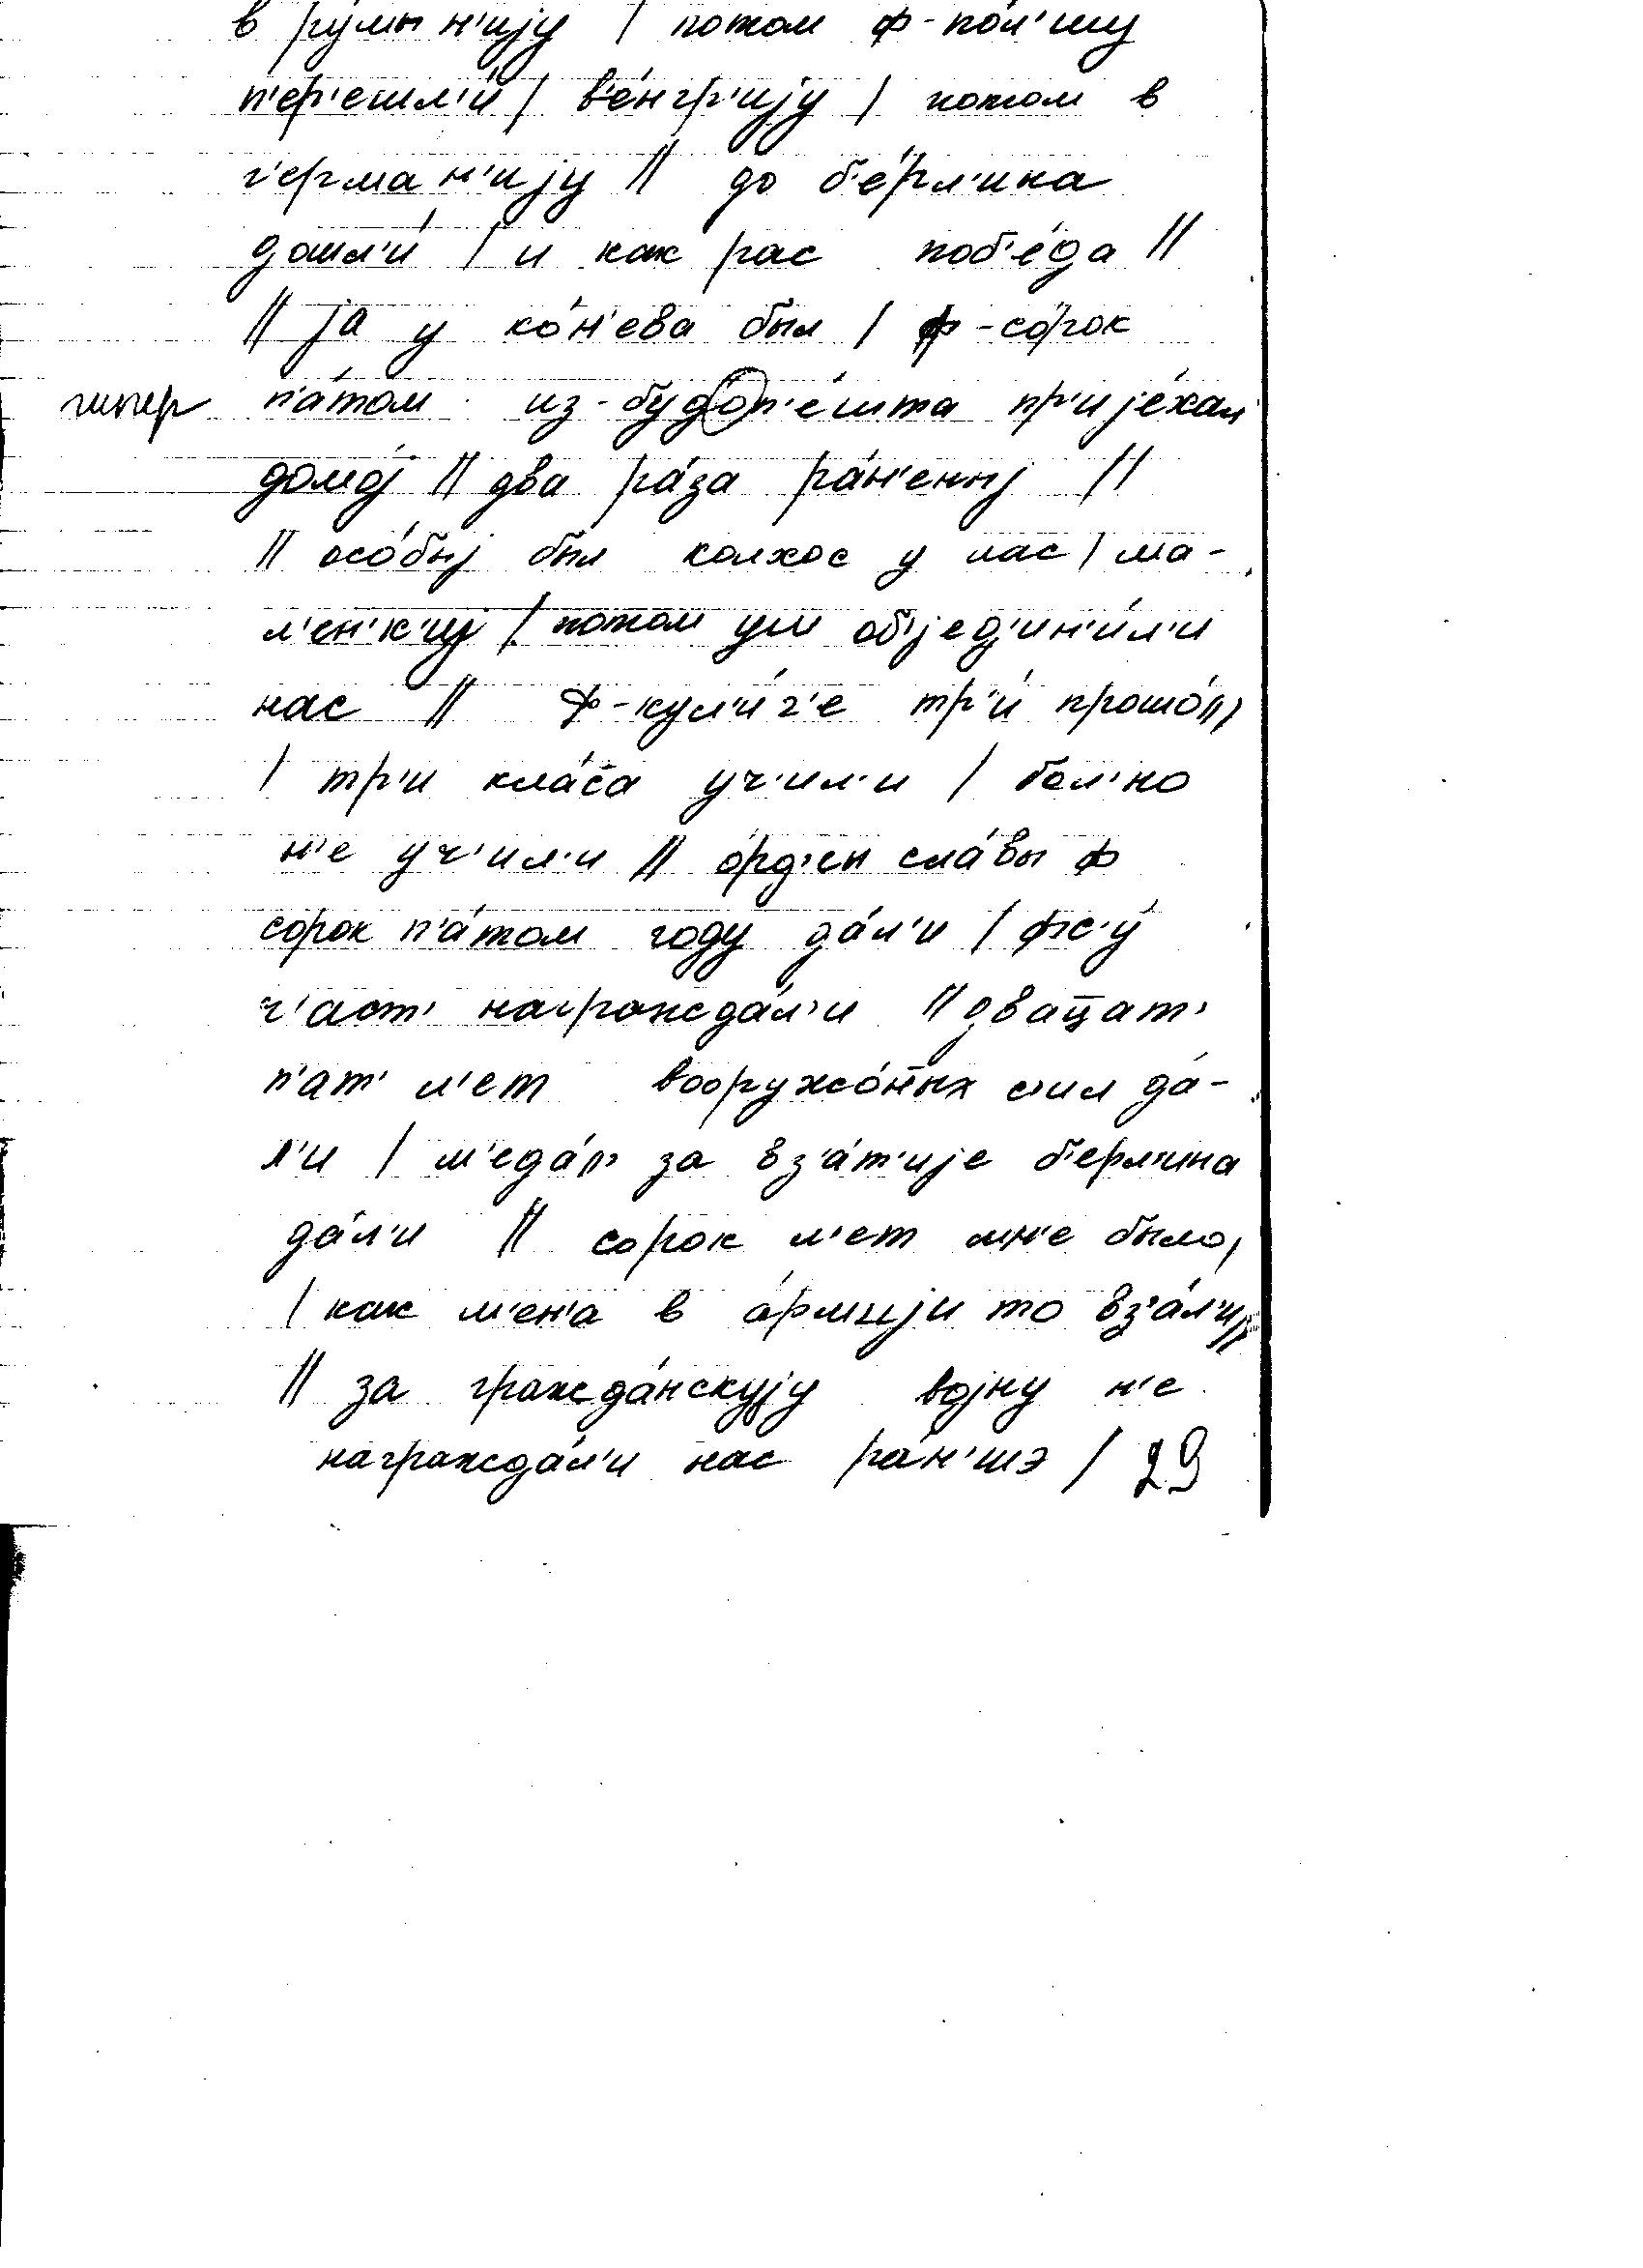 в ру́мын'ијy / потом ф-по́л'шу
п'ер'ешл'и́ / в'е́нгр'ијy / потом в
г'ерман'ијy // до б'е́рл'ина
дошл'и́ / и как рас поб'е́да //
// ја у ко́н'ева был / ф-со́рок
гипер п'а́том из-будоп'е́шта пр'ије́хал
домо́ј // два ра́за ра́н'еныј //
// осо́быј был колхос у нас / ма-
л'ен'к'иј / потом уш об'јед'ин'и́л'и
нас // ф-кул'и́г'е тр'и́ прошо́л,
/ тр'и кла́с̄а уч'ил'и / бол'но
н'е уч'ил'и // о́рд'ен сла́вы ф
сорок п'а́том году да́л'и / фс'у́
ч'аст' награжда́л'и // двац̄ат'
п'ат' л'ет вооружо́н̄ых с'ил да́-
л'и / м'еда́л' за вз'а́т'ије б'ерл'ина
да́л'и // сорок л'ет мн'е было,
/ как м'ен'а в а́рмији то вз'а́л'и //
// за гражда́нскују војну н'е
награжда́л'и нас ра́н'шэ / 29